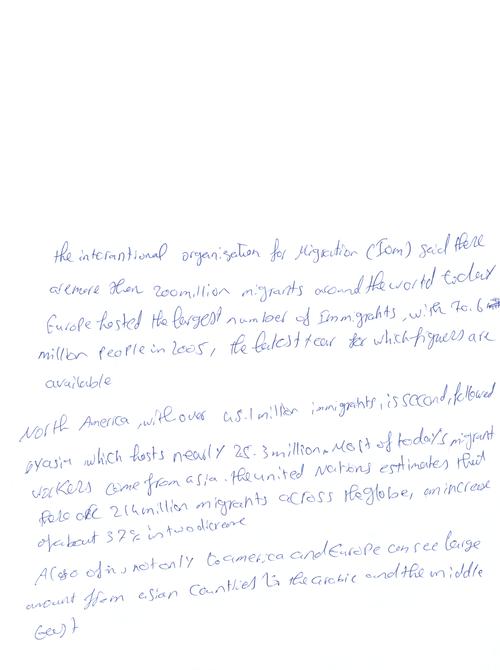 the interantional organization for Migration (Iom) said there
are more then 200 million migrants around the world today
Europe hosted the largest number of Immigrants, with 70.6
million people in 2005, the latest year for which figuers are
available
North America, with over 45.1 million immigrants, is second, followed
by asia which hosts nearly 25.3 million. Most of today's migrant
workers come from asia. the united Nations estimates that
214 million migrants across the globe, an increase
of about 37% in two
not only to america and Europe can see large
amount from asian Countries in the arabic and the middle
East